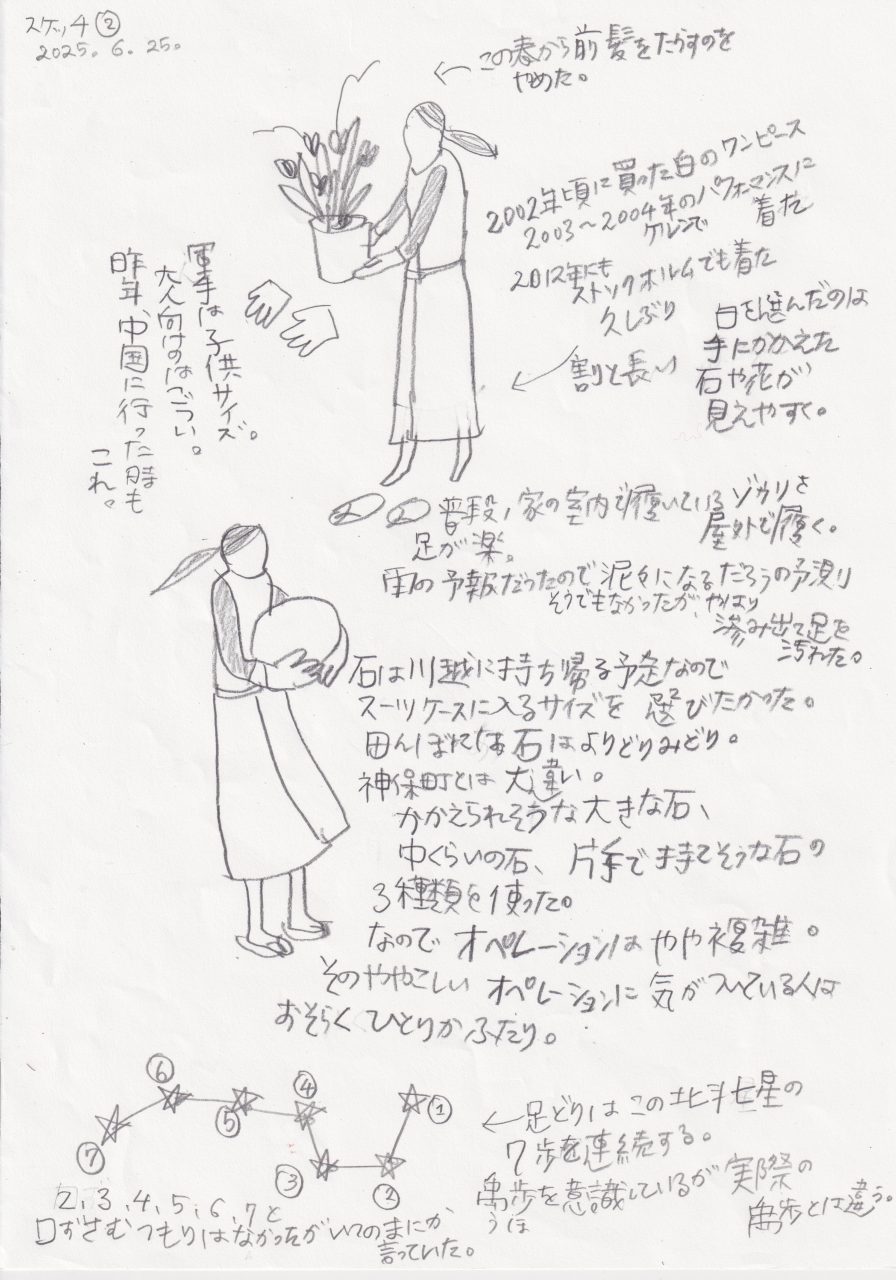 スケッチ②
2025. 6. 25.
この春から前髪をたらすのを
やめた。
2002年頃に買った白のワンピース
2003〜2004年のパフォーマンスに
ケルンで 着た
2012年にも
ストックホルムでも着た
久しぶり
白を選んだのは
手にかかえた
石や花が
見えやすく。
割と長い
軍手は子供サイズ。
大人向けのはごつい。
昨年、中国に行った時も
これ。
普段、家の室内で履いているゾウリを
屋外で履く。
足が楽。
雨の予報だったので泥々になるだろうの予測
そうでもなかったが、やはり
滲み出て足を
汚れた。
石は川越に持ち帰る予定なので
スーツケースに入るサイズを選びたかった。
田んぼには石はよりどりみどり。
神保町とは大違い。
かかえられそうな大きな石、
中くらいの石、片手で持てそうな石の
3種類を使った。
なのでオペレーションはやや複雑。
そのややこしいオペレーションに気がついている人は
おそらくひとりかふたり。
⑥
④
⑤
①
⑦
③
②
足どりはこの北斗七星の
7歩を連続する。
禹歩を意識しているが実際の
うほ
禹歩とは違う。
2、3、4、5、6、7と
口ずさむつもりはなかったがいつのまにか
言っていた。